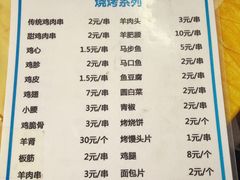 烧烤系列
传统鸡肉串 2元/串 羊肉头 3元/串
甜鸡肉串 2元/串 羊肥腰 10元/串
鸡心 1.5元/串 马步鱼 5元/串
鸡胗 2元/串 马口鱼 2元/串
鸡皮 1.5元/串 鱼豆腐 2元/串
鸡翅 7元/串 圆白菜 2元/串
小腰 3元/串 青椒 2元/串
鸡脆骨 3元/串 烤烧饼 2元/个
羊肾 30元/个 烤馒头片 1元/串
板筋 2元/串 鸡腿 8元/个
羊肉串 3元/串 面包片 2元/个